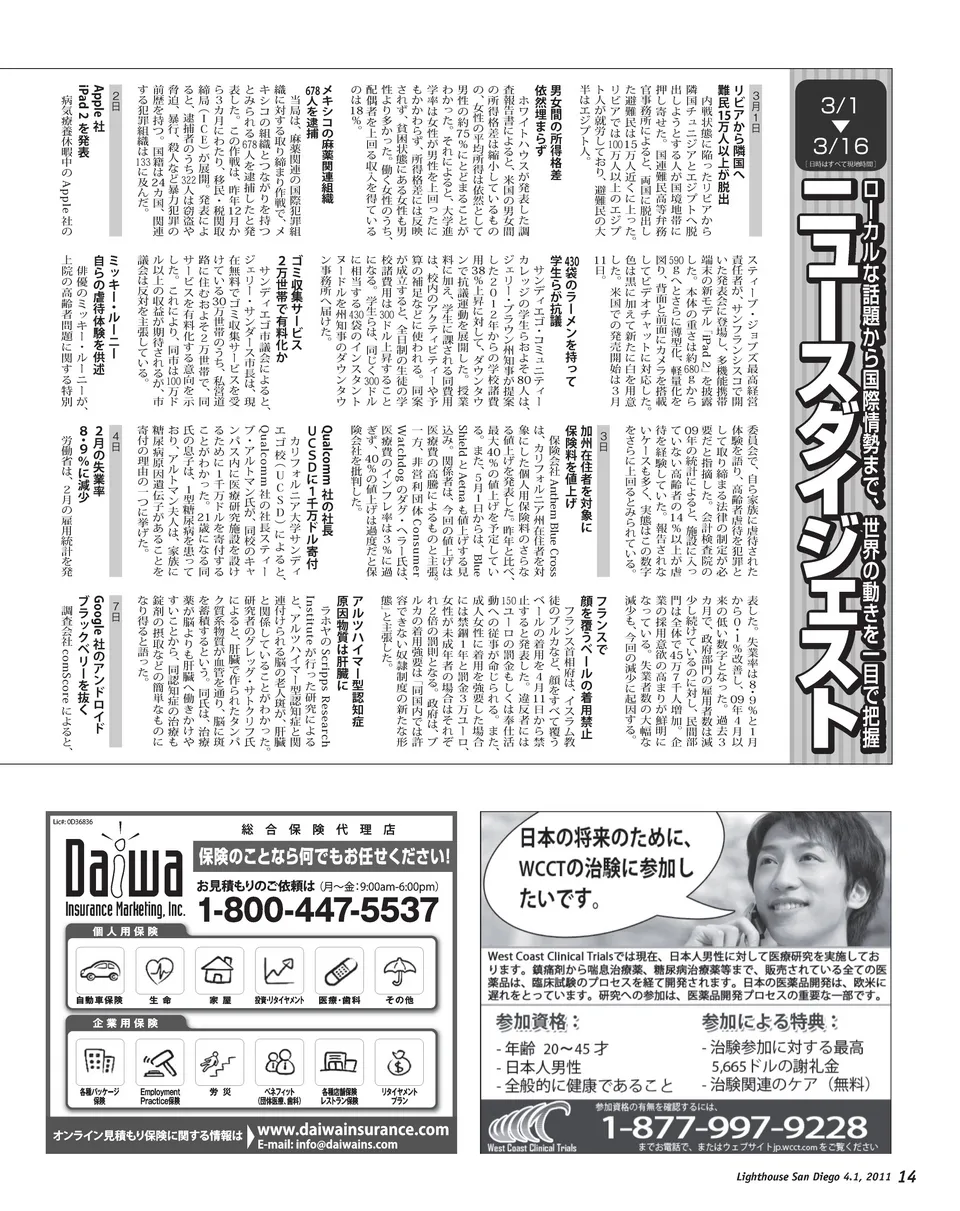 3/1
▼
3/16
[日時はすべて現地時間]
ローカルな話題から国際情勢まで、世界の動きを一目で把握
ニュースダイジェスト
3月1日
リビアから隣国へ
難民15万人以上が脱出
内戦状態に陥ったリビアから
隣国チュニジアとエジプトへ脱
出しようとする人が国境地帯に
押し寄せた。国連難民高等弁務
官事務所によると、両国に脱出し
た避難民は15万人近くに上った。
リビアでは100万人以上のエジプ
ト人が就労しており、避難民の大
半はエジプト人。
男女間の所得格差
依然埋まらず
ホワイトハウスが発表した調
査報告書によると、米国の男女間
の所得格差は縮小しているもの
の、女性の平均所得は依然として
男性の約75%にとどまることが
わかった。それによると、大学進
学率は女性が男性を上回ったに
もかかわらず、所得格差には反映
されず、貧困状態にある女性も男
性より多かった。働く女性のうち、
配偶者を上回る収入を得ている
のは18%。
メキシコの麻薬関連組織
678人を逮捕
当局は、麻薬関連の国際犯罪組
織に対する取り締まり作戦で、メ
キシコの組織とつながりを持つ
とみられる678人を逮捕したと発
表した。この作戦は、昨年12月か
ら3カ月にわたり、移民・税関取
締局(ICE)が展開。発表によ
ると、逮捕者のうち322人は窃盗や
脅迫、暴行、殺人など暴力犯罪の
前歴を持つ。国籍は24カ国、関連
する犯罪組織は133に及んだ。
2日
Apple社
iPad 2を発表
病気療養休暇中のApple社の
スティーブ・ジョブズ最高経営
責任者が、サンフランシスコで開
いた発表会に登場し、多機能携帯
端末の新モデル「iPad 2」を披露
した。本体の重さは約680gから
590gへとさらに薄型化、軽量化を
図り、背面と前面にカメラを搭載
してビデオチャットに対応した。
色は黒に加えて新たに白を用意
した。米国での発売開始は3月
11日。
430袋のラーメンを持って
学生らが抗議
サンディエゴ・コミュニティー
カレッジの学生らおよそ80人は、
ジェリー・ブラウン州知事が提案
した2012年からの学校諸費
用38%上昇に対して、ダウンタウ
ンで抗議運動を展開した。授業
料に加え、学生に課される同費用
は、校内のアクティビティーや予
算の補足などに使われる。同案
が成立すると、全日制の生徒の学
校諸費用は300ドル上昇すること
になる。学生らは、同じく300ドル
に相当する430袋のインスタント
ヌードルを州知事のダウンタウ
ン事務所へ届けた。
ゴミ収集サービス
2万世帯で有料化か
サンディエゴ市議会によると、
ジェリー・サンダース市長は、現
在無料でゴミ収集サービスを受
けている30万世帯のうち、私営道
路に住むおよそ2万世帯で、同
サービスを有料化する意向を示
した。これにより、同市は100万ド
ル以上の収益が期待されるが、市
議会は反対を主張している。
ミッキー・ルーニー
自らの虐待体験を供述
俳優のミッキー・ルーニーが、
上院の高齢者問題に関する特別
委員会で、自ら家族に虐待された
体験を語り、高齢者虐待を犯罪と
して取り締まる法律の制定が必
要だと指摘した。会計検査院の
09年の統計によると、施設に入っ
ていない高齢者の14%以上が虐
待を経験していた。報告されな
いケースも多く、実態はこの数字
をさらに上回るとみられている。
3日
加州在住者を対象に
保険料を値上げ
保険会社Anthem Blue Cross
は、カリフォルニア州在住者を対
象にした個人用保険料のさらな
る値上げを発表した。昨年と比べ、
最大40%の値上げを予定してい
る。また、5月1日からは、Blue
ShieldとAetnaも値上げする見
込み。関係者は、今回の値上げは
医療費の高騰によるものと主張。
一方、非営利団体Consumer
Watchdogのダグ・ヘラー氏は、
医療費のインフレ率は3%に過
ぎず、40%の値上げは過度だと保
険会社を批判した。
Qualcomm社の社長
UCSDに1千万ドル寄付
カリフォルニア大学サンディ
エゴ校(UCSD)によると、
Qualcomm社の社長スティー
ブ・アルトマン氏が、同校のキャ
ンパス内に医療研究施設を設け
るために1千万ドルを寄付する
ことがわかった。21歳になる同
氏の息子は、1型糖尿病を患って
おり、アルトマン夫人は、家族に
糖尿病原因遺伝子があることを
寄付の理由の一つに挙げた。
4日
2月の失業率
8・9%に減少
労働省は、2月の雇用統計を発
表した。失業率は8・9%と1月
から0・1%改善し、09年4月以
来の低い数字となった。過去3
カ月で、政府部門の雇用者数は減
少し続けているのに対し、民間部
門は全体で45万7千人増加。企
業の採用意欲の高まりが鮮明に
なっている。失業者数の大幅な
減少も、今回の減少に起因する。
フランスで
顔を覆うベールの着用禁止
フランス首相府は、イスラム教
徒のブルカなど、顔をすべて覆う
ベールの着用を4月11日から禁
止すると発表した。違反者には
150ユーロの罰金もしくは奉仕活
動への従事が命じられる。また、
成人女性に着用を強要した場合
には禁錮1年と罰金3万ユーロ、
女性が未成年者の場合はそれぞ
れ2倍の罰則となる。政府は、ブ
ルカの着用強要は「同国内では許
容できない奴隷制度の新たな形
態」と主張した。
アルツハイマー型認知症
原因物質は肝臓に
ラホヤのScripps Research
Instituteが行った研究による
と、アルツハイマー型認知症と関
連付けられる脳の老人斑が、肝臓
と関係していることがわかった。
研究者のグレッグ・サトクリフ氏
によると、肝臓で作られたタンパ
ク質系物質が血管を通り、脳に斑
を蓄積するという。同氏は、治療
薬が脳よりも肝臓へ働きかけや
すいことから、同認知症の治療も
錠剤の摂取などの簡単なものに
なり得ると語った。
7日
Google社のアンドロイド
ブラックベリーを抜く
調査会社comScoreによると、
Lic#: 0D36836
Daiwa
Insurance Marketing, Inc.
総合保険代理店
保険のことなら何でもお任せください!
お見積もりのご依頼は(月〜金:9:00am-6:00pm)
1-800-447-5537
個人用保険
自動車保険
生命
家屋
投資・リタイヤメント
医療・歯科
その他
企業用保険
各種パッケージ
保険
Employment
Practice保険
労災
ベネフィット
(団体医療、歯科)
各種店舗保険
レストラン保険
リタイヤメント
プラン
オンライン見積もり保険に関する情報は
www.daiwainsurance.com
E-mail: info@daiwains.com
日本の将来のために、
WCCTの治験に参加し
たいです。
West Coast Clinical Trialsでは現在、日本人男性に対して医療研究を実施してお
ります。鎮痛剤から喘息治療薬、糖尿病治療薬等まで、販売されている全ての医
薬品は、臨床試験のプロセスを経て開発されます。日本の医薬品開発は、欧米に
遅れをとっています。研究への参加は、医薬品開発プロセスの重要な一部です。
参加資格:
- 年齢 20〜45才
- 日本人男性
- 全般的に健康であること
参加による特典:
- 治験参加に対する最高
5,665ドルの謝礼金
- 治験関連のケア(無料)
West Coast Clinical Trials
参加資格の有無を確認するには、
1-877-997-9228
までお電話で、またはウェブサイトjp.wcct.comをご覧ください
Lighthouse San Diego 4.1, 2011 14